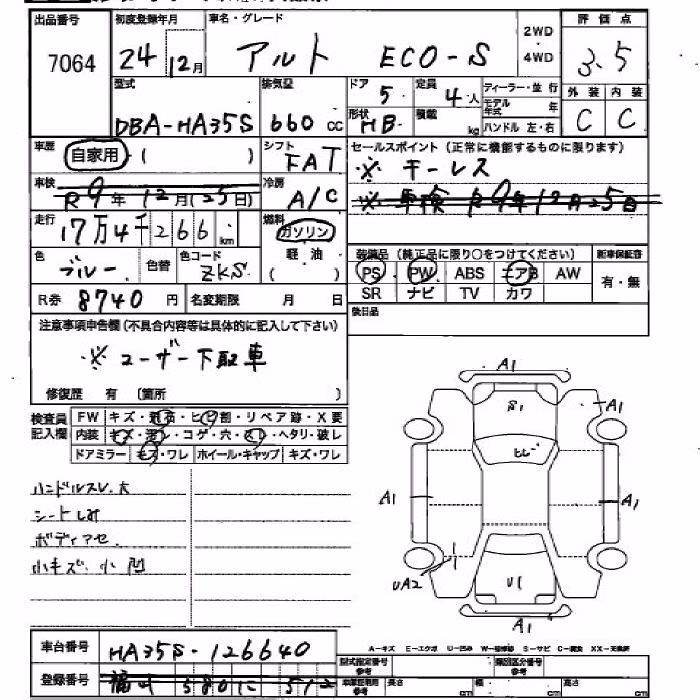 出品番号 初度登録年月 車名・グレード 評価点
7064 24年12月 アルト ECO-S 2WD・4WD 3.5
外装 内装
C C
型式 排気量 ドア 定員 ディーラー・並行
DBA-HA35S 660cc 5 4人 モデル年式 年
形状 積載 ハンドル 左・右
HB kg
車歴 自家用・( ) シフト FAT セールスポイント(正常に機能するものに限ります)
※ キーレス
車検 R9年12月(25日) 冷房 A/C ※ 車検 R9年12月25日
走行 17万4千266km 燃料 ガソリン 軽油 ( )
装備品(純正品に限り○をつけてください) 新車保証書
色 ブルー 色替 色コード ZKS PS PW ABS エアB AW 有・無
SR ナビ TV カワ
R券 8740円 名変期限 月 日 後日品
注意事項申告欄(不具合内容等は具体的に記入して下さい)
※ユーザー下取車
修復歴 有 〔箇所 〕
検査員記入欄
FW キズ・飛石・ヒビ割・リペア跡・X要
内装 キメ・汚レ・コゲ・穴・スレ・ヘタリ・破レ
ドアミラー キズ・ワレ ホイール・キャップ キズ・ワレ
ハンドルスレ大
シートしみ
ボディアセ.
小キズ、小凹
A1
A1
A1
A1
UA2
U1
A1
A-キズ E-エクボ U-凹み W-補修跡 S-サビ C-腐食 XX-交換済
車台番号 HA35S-126640
型式指定番号 参考 類別区分番号 参考
登録番号 福山 580 に 512
長さ cm 幅 cm 高さ cm